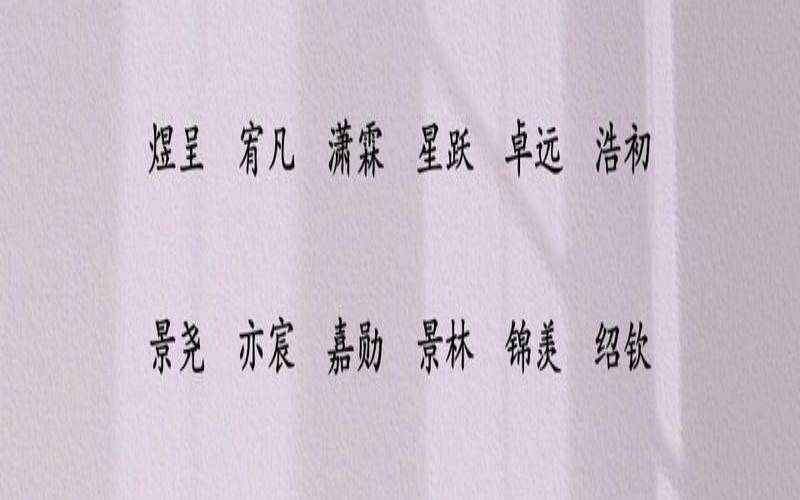 煜呈 宥凡 潇霖 星跃 卓远 浩初
景尧 亦宸 嘉勋 景林 锦羡 绍钦